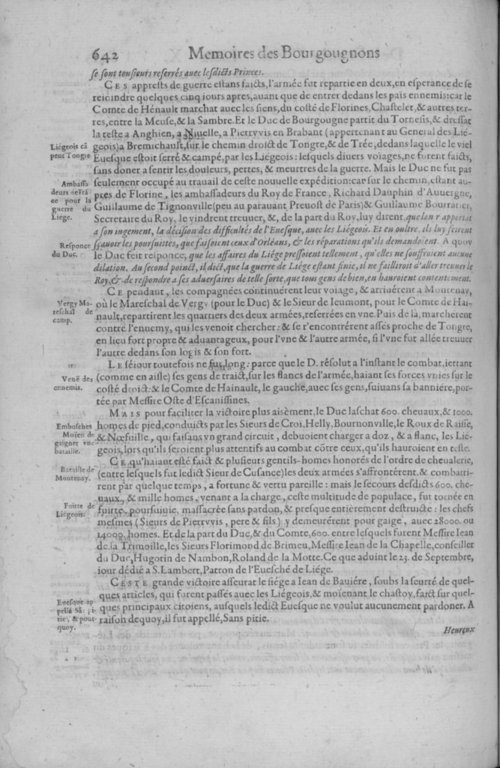 642 Memoires des Bourgougnons
se sont tousiours reserrés auec lesdicts Princes.
CES apprests de guerre estans faicts, l'armée fut repartie en deux, en esperance de se
reioindre quelques cinq iours apres, auant que de entrer dedans les païs ennemis: car le
Comte de Hénault marchat auec les siens, du costé de Florines, Chastelet, & autres ter-
res, entre la Meuse, & la Sambre. Et le Duc de Bourgougne partit du Tornesis, & dressat
la teste a Anghien, a Niuelle, a Pieruuis en Brabant (appertenant au General des Lié-
geois) a Bremichanst, sur le chemin droict de Tongre, & de Trée, dedans laquelle le viel
Euesque estoit serré & campé, par les Liégeois: lesquels diuers voiages, ne furent faicts,
sans doner a sentir les douleurs, pertes, & meurtres de la guerre. Mais le Duc ne fut pas
seulement occupé au trauail de ceste nouuelle expédition: car sur le chemin, estant au-
prés de Florine, les ambassadeurs du Roy de France, Richard Dauphin d'Auuergne,
Guillaume de Tignonuille (peu au parauant Preuost de Paris) & Guillaume Bourratier,
Secretaire du Roy, le vindrent treuuer, &, de la part du Roy, luy dirent, que l'on r'apportat
a son iugement, la décision des difficultés de l'Euesque, auec les Liégeois. Et en oultre, ils luy feirent
sçauoir les poursuittes, que faisoient ceux d'Orléans, & les réparations qu'ils demandoient. A quoy
le Duc feit responce, que les affaires du Liége pressoient tellement, qu'elles ne souffroient aucune
dilation. Au second poinct, il dict, que la guerre de Liége estant finie, il ne failliroit d'aller treuuer le
Roy, & de respondre a ses aduersaires de telle sorte, que tous gens de bien, en hauroient contentement.
CE pendant, les compagnées continuérent leur voiage, & arriuérent a Montenay,
où le Mareschal de Vergy (pour le Duc) & le Sieur de Ieumont, pour le Comte de Hai-
nault, repartirent les quartiers des deux armées, reserrées en vne. Puis de là, marchérent
contre l'ennemy, qui les venoit chercher: & se r'encontrérent assés proche de Tongre,
en lieu fort propre & aduantageux, pour l'vne & l'autre armée, si l'vne fut allée treuuer
l'autre dedans son logis & son fort.
LE séiour toutefois ne fut long: parce que le D. résolut a l'instant le combat, iettant
(comme en aisle) ses gens de traict, sur les flancs de l'armée, haiant ses forces vnies sur le
costé droict: & le Comte de Hainault, le gauche, auec ses gens, suiuans sa bannière, por-
tée par Messire Oste d'Escaussines.
MAIS pour faciliter la victoire plus aisément, le Duc laschat 600. cheuaux, & 1000.
homes de pied, conduicts par les Sieurs de Croi, Helly, Bournonuille, le Roux de Raisse,
& Nœfuille, qui faisans vn grand circuit, debuoient charger a doz, & a flanc, les Lié-
geois, lors qu'ils seroient plus attentifs au combat côtre ceux, qu'ils hauroient en teste.
CE qu'haiant esté faict & plusieurs gentils-homes honorés de l'ordre de cheualerie,
(entre lesquels fut ledict Sieur de Cusance) les deux armées s'affrontérent, & combati-
rent par quelque temps, a fortune & vertu pareille: mais le secours desdicts 600. che-
uaux, & mille homes, venant a la charge, ceste multitude de populace, fut tornée en
fuitte, poursuiuie, massacrée sans pardon, & presque entiérement destruicte: les chefs
mesmes (Sieurs de Pieruuis, pere & fils) y demeurérent pour gaige, auec 28000. ou
24000. homes. Et de la part du Duc, & du Comte, 600. entre lesquels furent Messire Iean
de la Trimoille, les Sieurs Florimond de Brimeu, Messire Iean de la Chapelle, conseiller
du Duc, Hugotin de Nambon, Roland de la Motte. Ce que adoint le 23. de Septembre,
iour dédié a S. Lambert, Patron de l'Euesché de Liége.
CESTE grande victoire asseurat le siége a Iean de Bauiére, soubs la seurté de quel-
ques articles, qui furent passés auec les Liégeois, & moïenant le chastoy, faict sur quel-
ques principaux citoiens, ausquels ledict Euesque ne voulut aucunement pardoner. A
raison dequoy, il fut appellé, Sans pitie.
Heureux
Liégeois cã
pés Tongre
Ambassa-
deurs
ée pour la
guerre du
Liege.
Responce
du Duc.
Vergy Ma-
reschal de
camp.
Venë des
ennemis.
Embusches
Moïen de
gaigner vne
bataille.
Bataille de
Montenay.
Fuitte de
Liégeois.
Euesque ap
pellé Sãs pi
tie, & pour-
quoy.